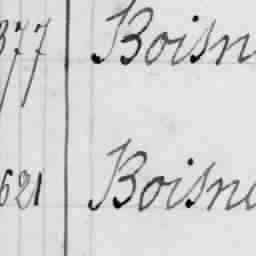 377 Boisn
621 Boisn